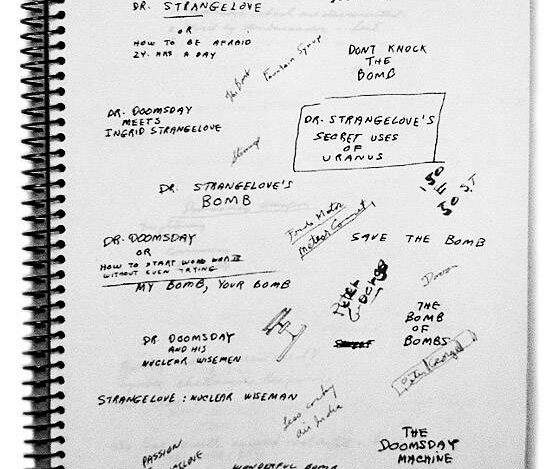 DR. STRANGELOVE
OR
HOW TO BE AFRAID
24 HRS A DAY
DONT KNOCK
THE
BOMB
The Bomb
Fountain Syrup
DR. DOOMSDAY
MEETS
INGRID STRANGELOVE
DR. STRANGELOVE'S
SECRET USES
OF
URANUS
Strange
DR. STRANGELOVE'S
BOMB
150
ST
50
DR. DOOMSDAY
OR
HOW TO START WORLD WAR III
WITHOUT EVEN TRYING
Meteor
SAVE THE BOMB
MY BOMB, YOUR BOMB
PETER
GEORGE
THE
BOMB
OF
BOMBS
DR DOOMSDAY
AND HIS
NUCLEAR WISEMEN
Peter George
STRANGELOVE: NUCLEAR WISEMAN
air India
THE
DOOMSDAY
MACHINE
PASSION
WONDERFUL BOMB